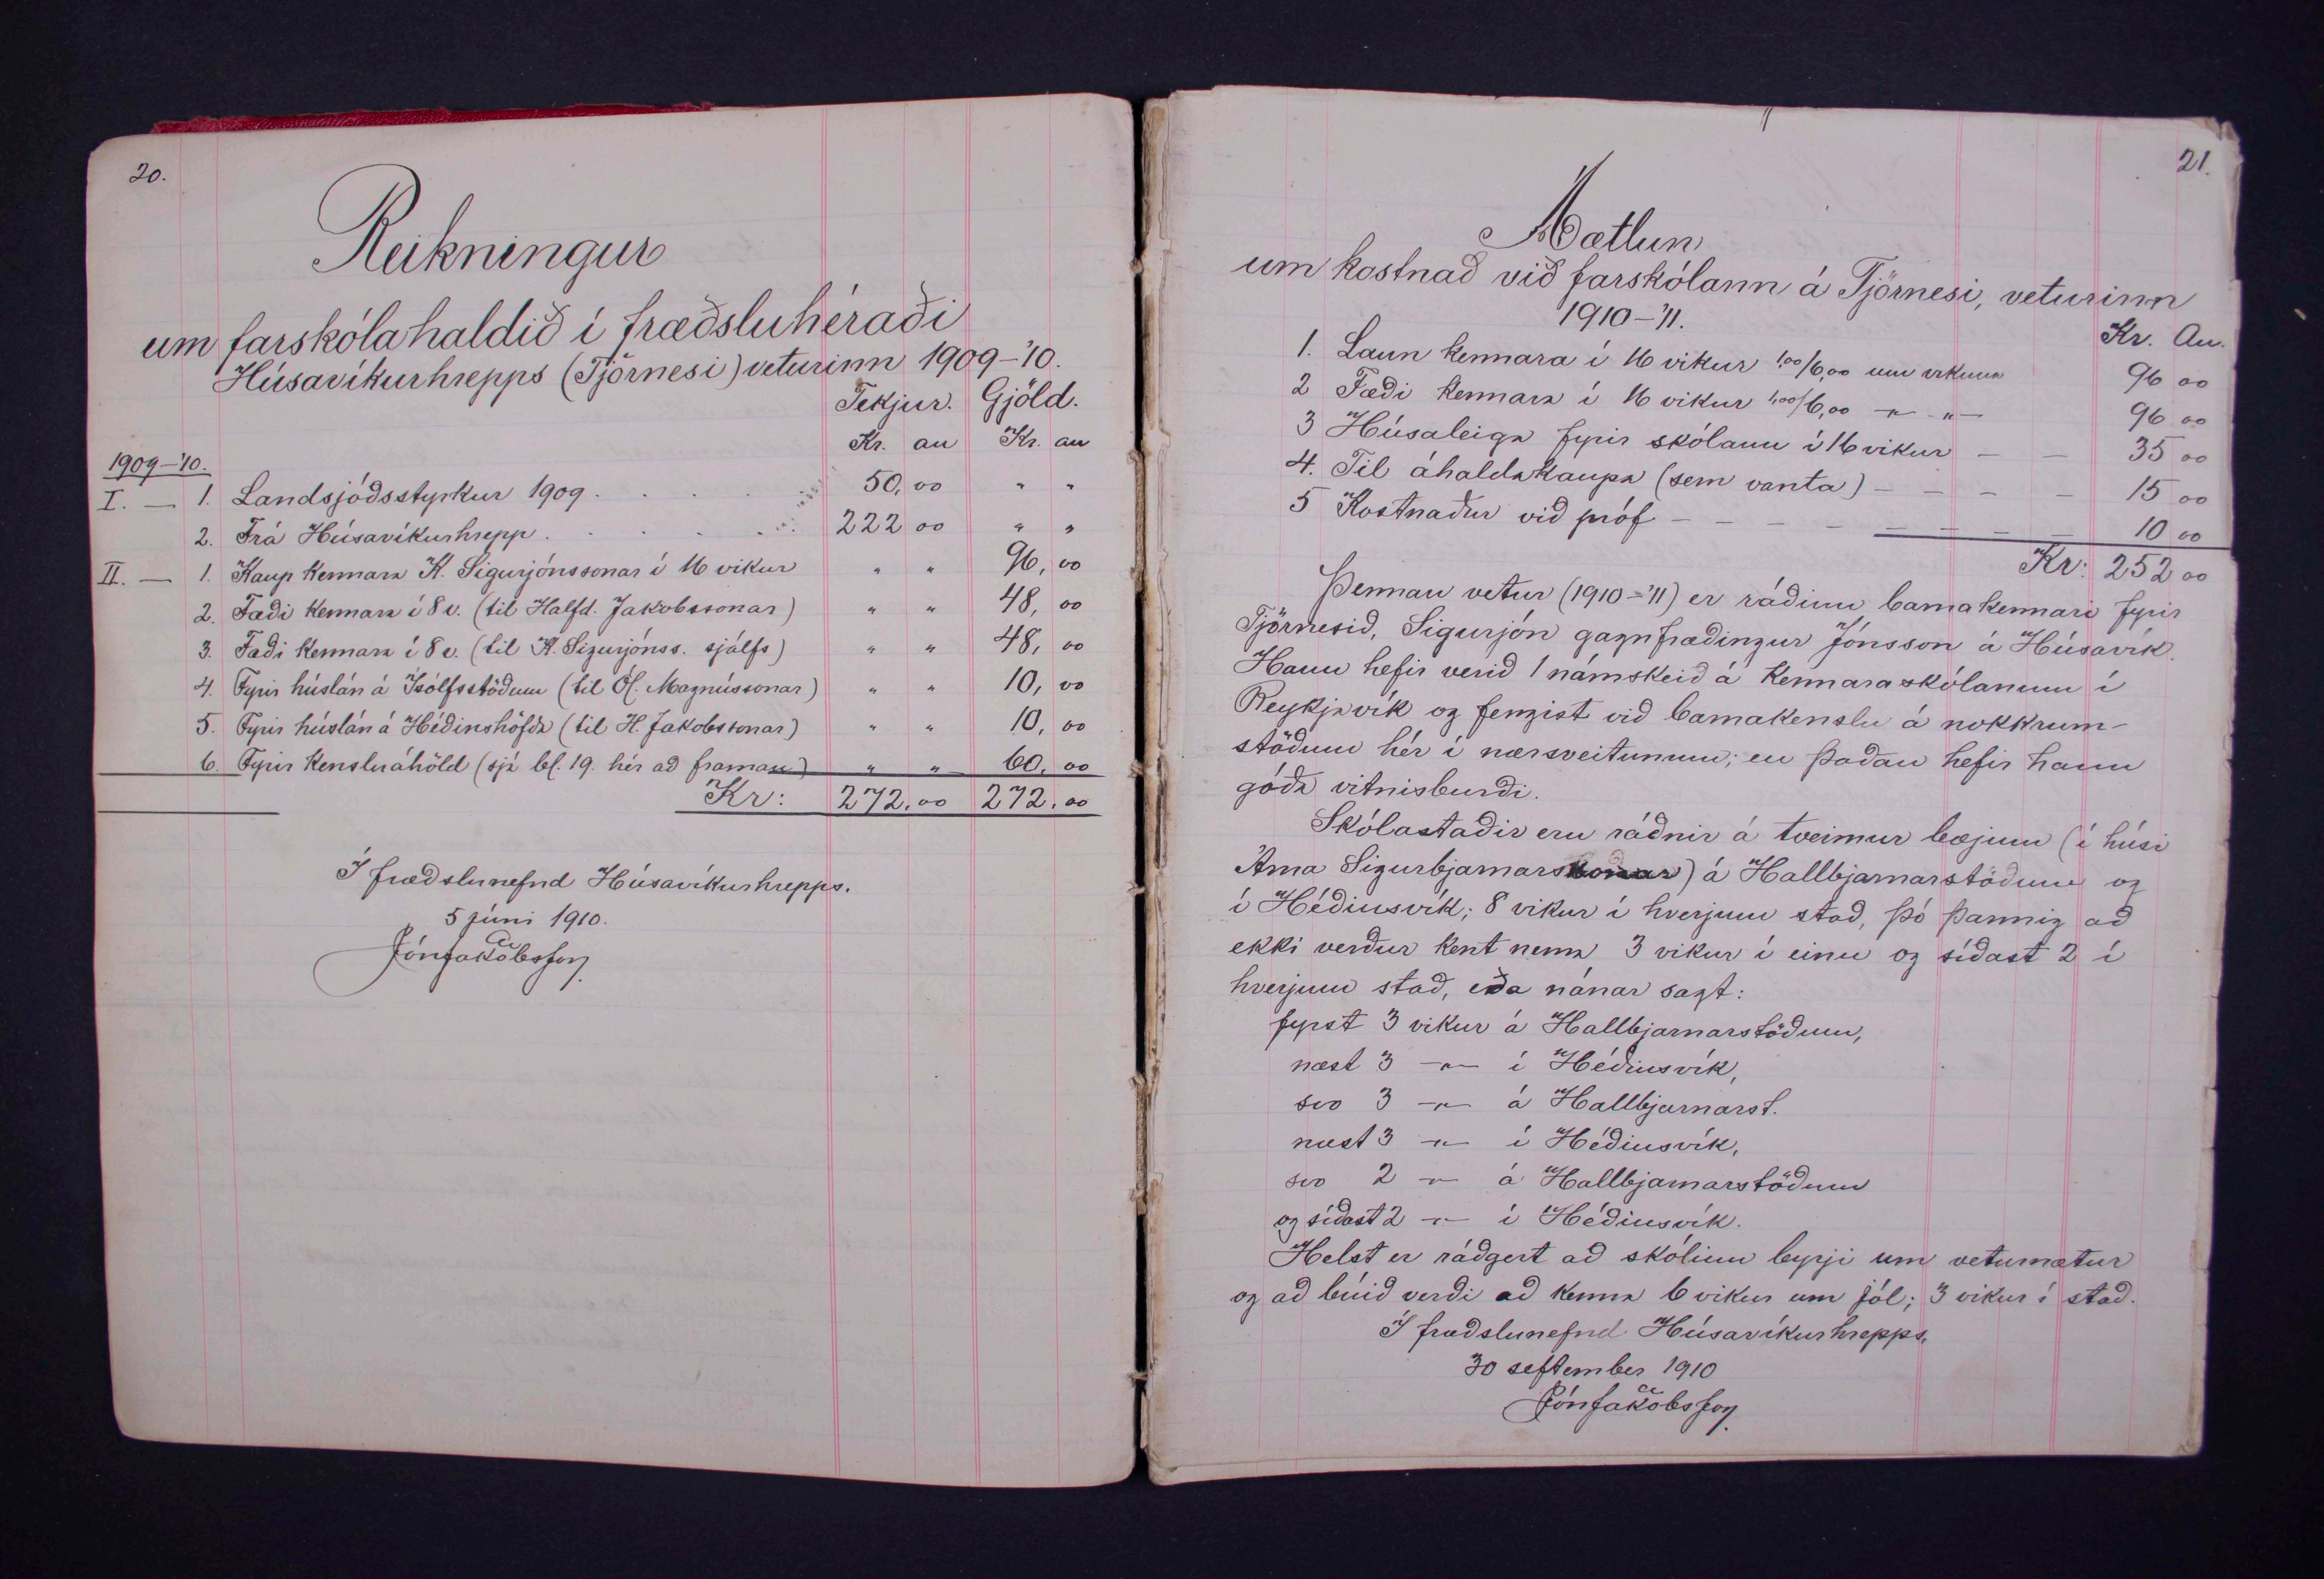 20.
Reikningur
um farskólahaldið í fræðsluhéraði
Húsavíkurhrepps (Tjörnesi) veturinn 1909-'10.
Tekjur. Gjöld.
Kr. au Kr. au
1909-'10.
I. — 1. Landsjóðsstyrkur 1909 . . . . . 50,00 " "
2. Frá Húsavíkurhrepp . . . . . 222 00 " "
II. — 1. Kaup kennara K. Sigurjónssonar í 16 vikur " " 96,00
2. Fæði kennara í 8 v. (til Halfd. Jakobssonar) " " 48,00
3. Fæði kennara í 8 v. (til K. Sigurjónss. sjálfs) " " 48,00
4. Fyrir húslán á Ísólfsstöðum (til Ól. Magnússonar) " " 10,00
5. Fyrir húslán á Héðinshöfða (til H. Jakobssonar) " " 10,00
6. Fyrir kensluáhöld (sjá bl. 19. hér að framan) " " 60,00
Kr: 272.00 272.00
Í fræðslunefnd Húsavíkurhrepps.
5 júní 1910.
Jón Jakobsson
21.
Áætlun
um kostnað við farskólann á Tjörnesi, veturinn
1910-'11.
Kr. Au.
1. Laun kennara í 16 vikur 1,00/6,00 um vikuna 96 00
2 Fæði kennara í 16 vikur 1,00/6,00 —"— —"— 96 00
3 Húsaleiga fyrir skólann í 16 vikur — — 35 00
4. Til áhaldakaupa (sem vanta) — — — — 15 00
5 Kostnaður við próf — — — — — — — — 10 00
Kr: 252 00
Þennan vetur (1910-'11) er ráðinn barnakennari fyrir
Tjörnesið, Sigurjón gagnfræðingur Jónsson á Húsavík.
Hann hefir verið 1 námskeið á Kennaraskólanum í
Reykjavík og fengist við barnakenslu á nokkrum-
stöðum hér í nærsveitunum; en þaðan hefir hann
góða vitnisburði.
Skólastaðir eru ráðnir á tveimur bæjum (í húsi
Árna Sigurbjarnarsonar) á Hallbjarnarstöðum og
í Héðinsvík; 8 vikur í hverjum stað, þó þannig að
ekki verður kent nema 3 vikur í einu og síðast 2 í
hverjum stað, eða nánar sagt:
fyrst 3 vikur á Hallbjarnarstöðum,
næst 3 —"— í Héðinsvík,
svo 3 —"— á Hallbjarnarst.
næst 3 —"— í Héðinsvík,
svo 2 —"— á Hallbjarnarstöðum
og síðast 2 —"— í Héðinsvík.
Helst er ráðgert að skólinn byrji um veturnætur
og að búið verði að kenna 6 vikur um jól; 3 vikur í stað.
Í fræðslunefnd Húsavíkurhrepps,
30 september 1910
Jón Jakobsson